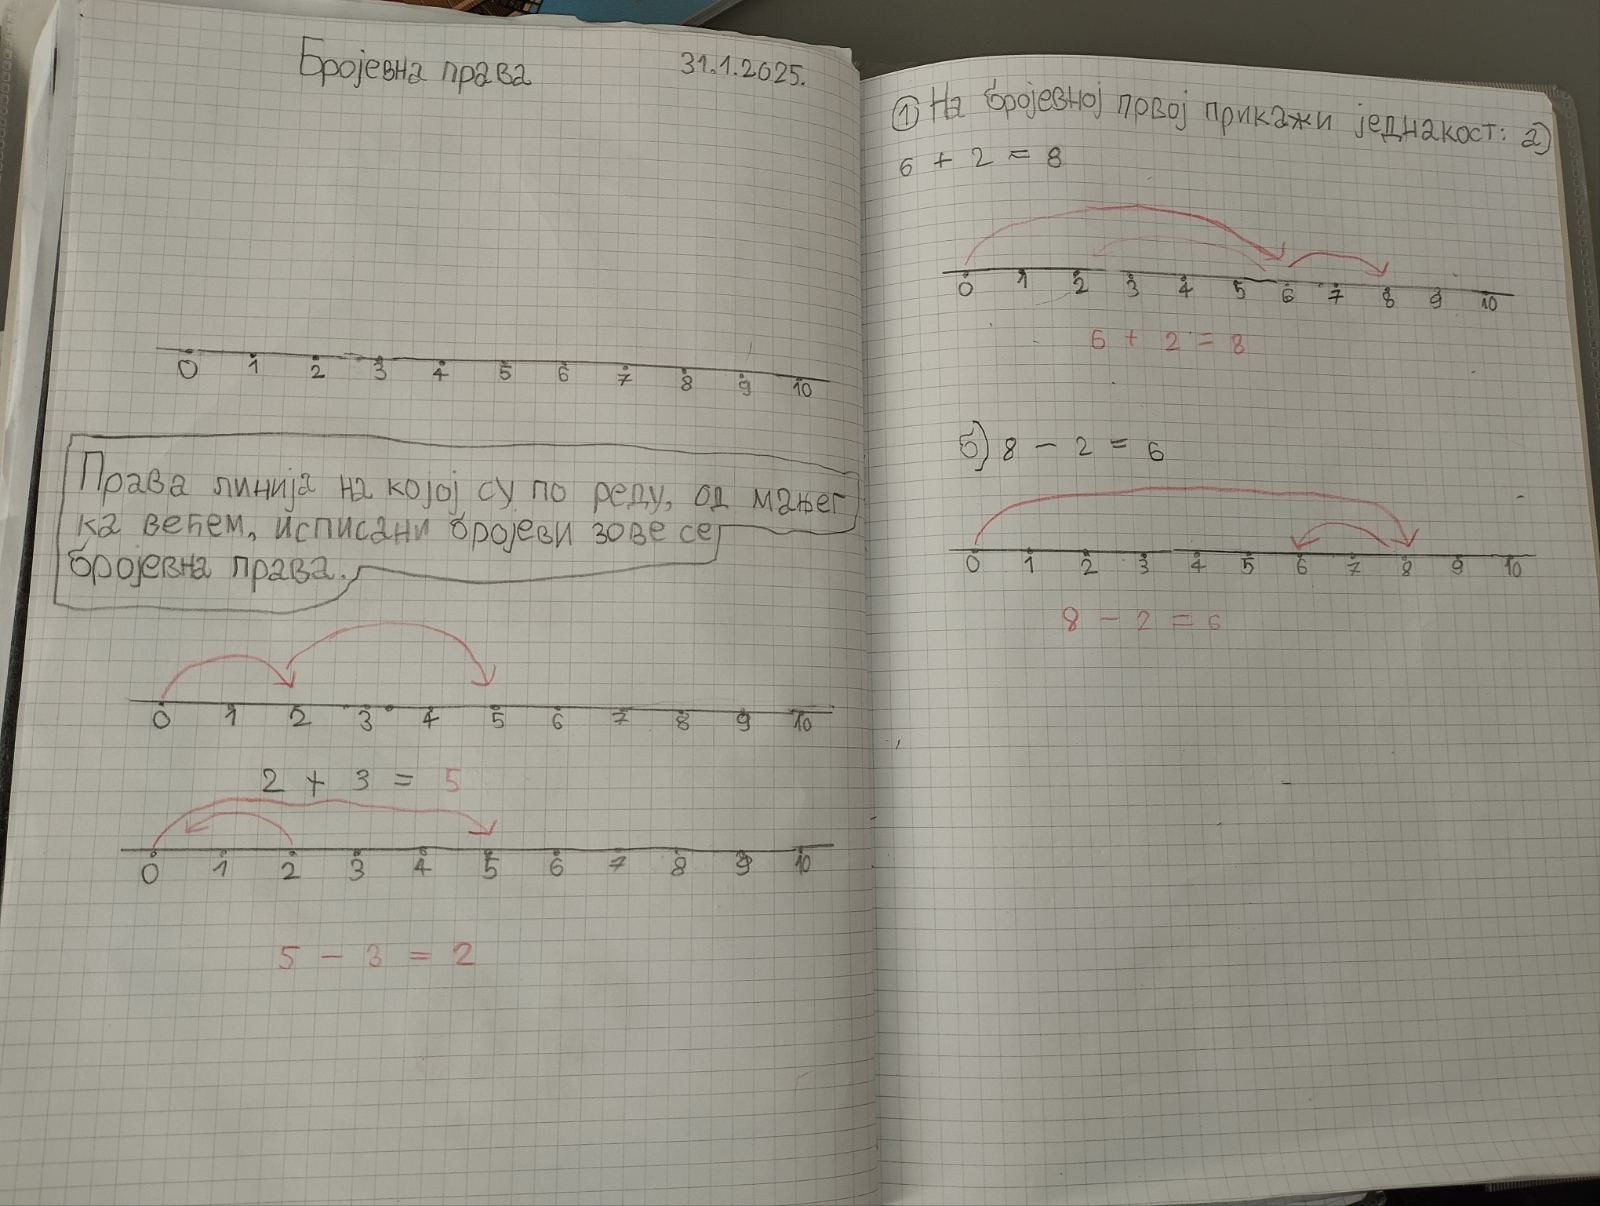 Бројевна права 31.1.2025.
0 1 2 3 4 5 6 7 8 9 10
Права линија на којој су по реду, од мањег
ка већем, исписани бројеви зове се
бројевна права.
0 1 2 3 4 5 6 7 8 9 10
2 + 3 = 5
0 1 2 3 4 5 6 7 8 9 10
5 - 3 = 2
1) На бројевној првој прикажи једнакост: а)
6 + 2 = 8
0 1 2 3 4 5 6 7 8 9 10
6 + 2 = 8
б) 8 - 2 = 6
0 1 2 3 4 5 6 7 8 9 10
8 - 2 = 6